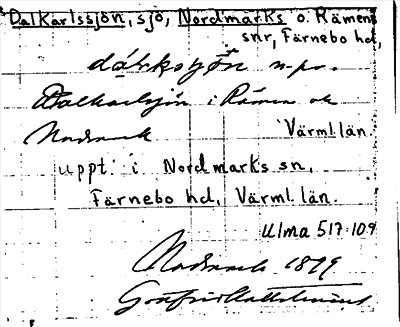 Dalkarlssjön, sjö, Nordmarks o. Rämens
snr, Färnebo hd,
Dalkarlsjön i Rämen ok
Nordmark Värml. län.
uppt. i Nordmarks sn,
Färnebo hd, Värml. län.
Ulma 517:109
Nordmark 1899
Gottfrid Kallstenius